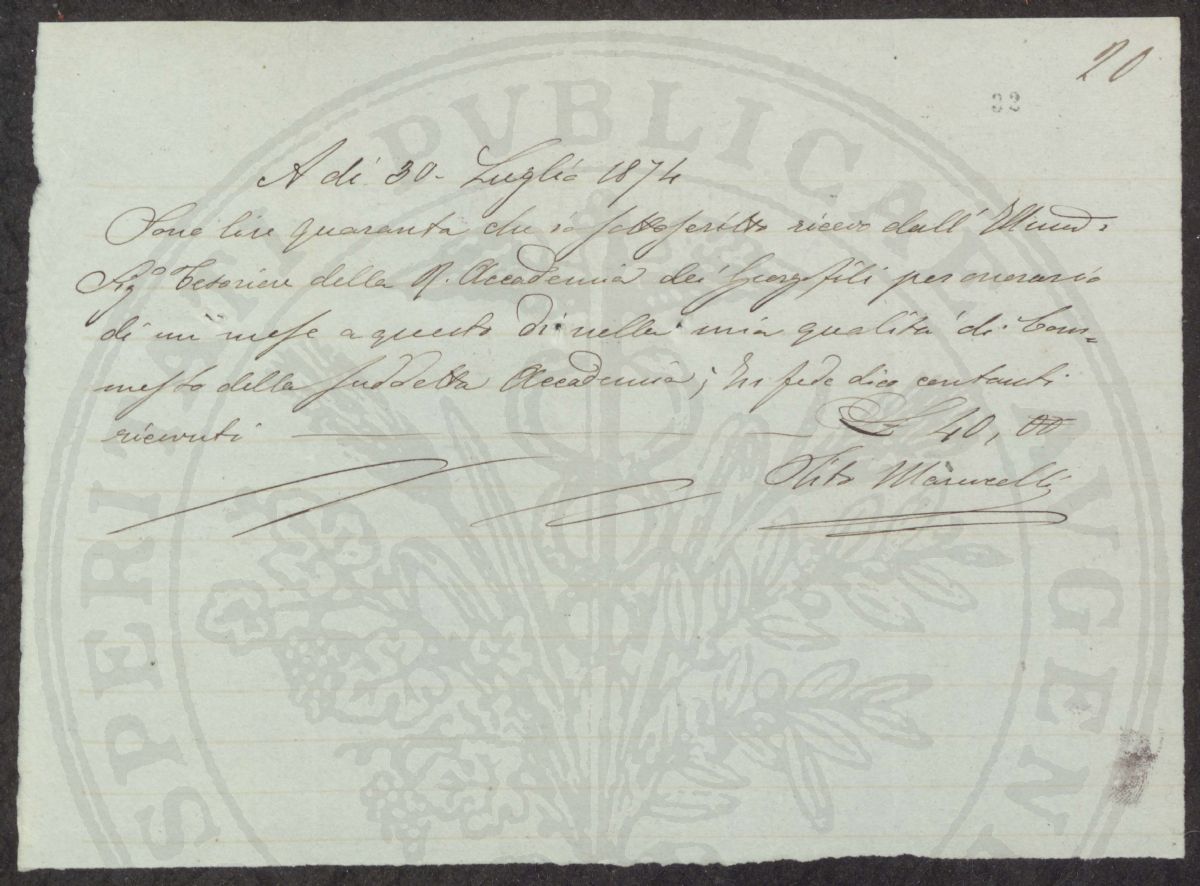 20
32
A dì 30. Luglio 1874
Sono lire quaranta che io sottoscritto ricevo dall'
Sig.º Tesoriere della R. Accademia dei Georgofili per onorario
di un mese a questo dì nella mia qualità di Com=
messo della suddetta Accademia; In fede dico contanti
ricevuti — — — £ 40, 00
Tito
PROSPERITATI PVBLICAE AVGENDAE